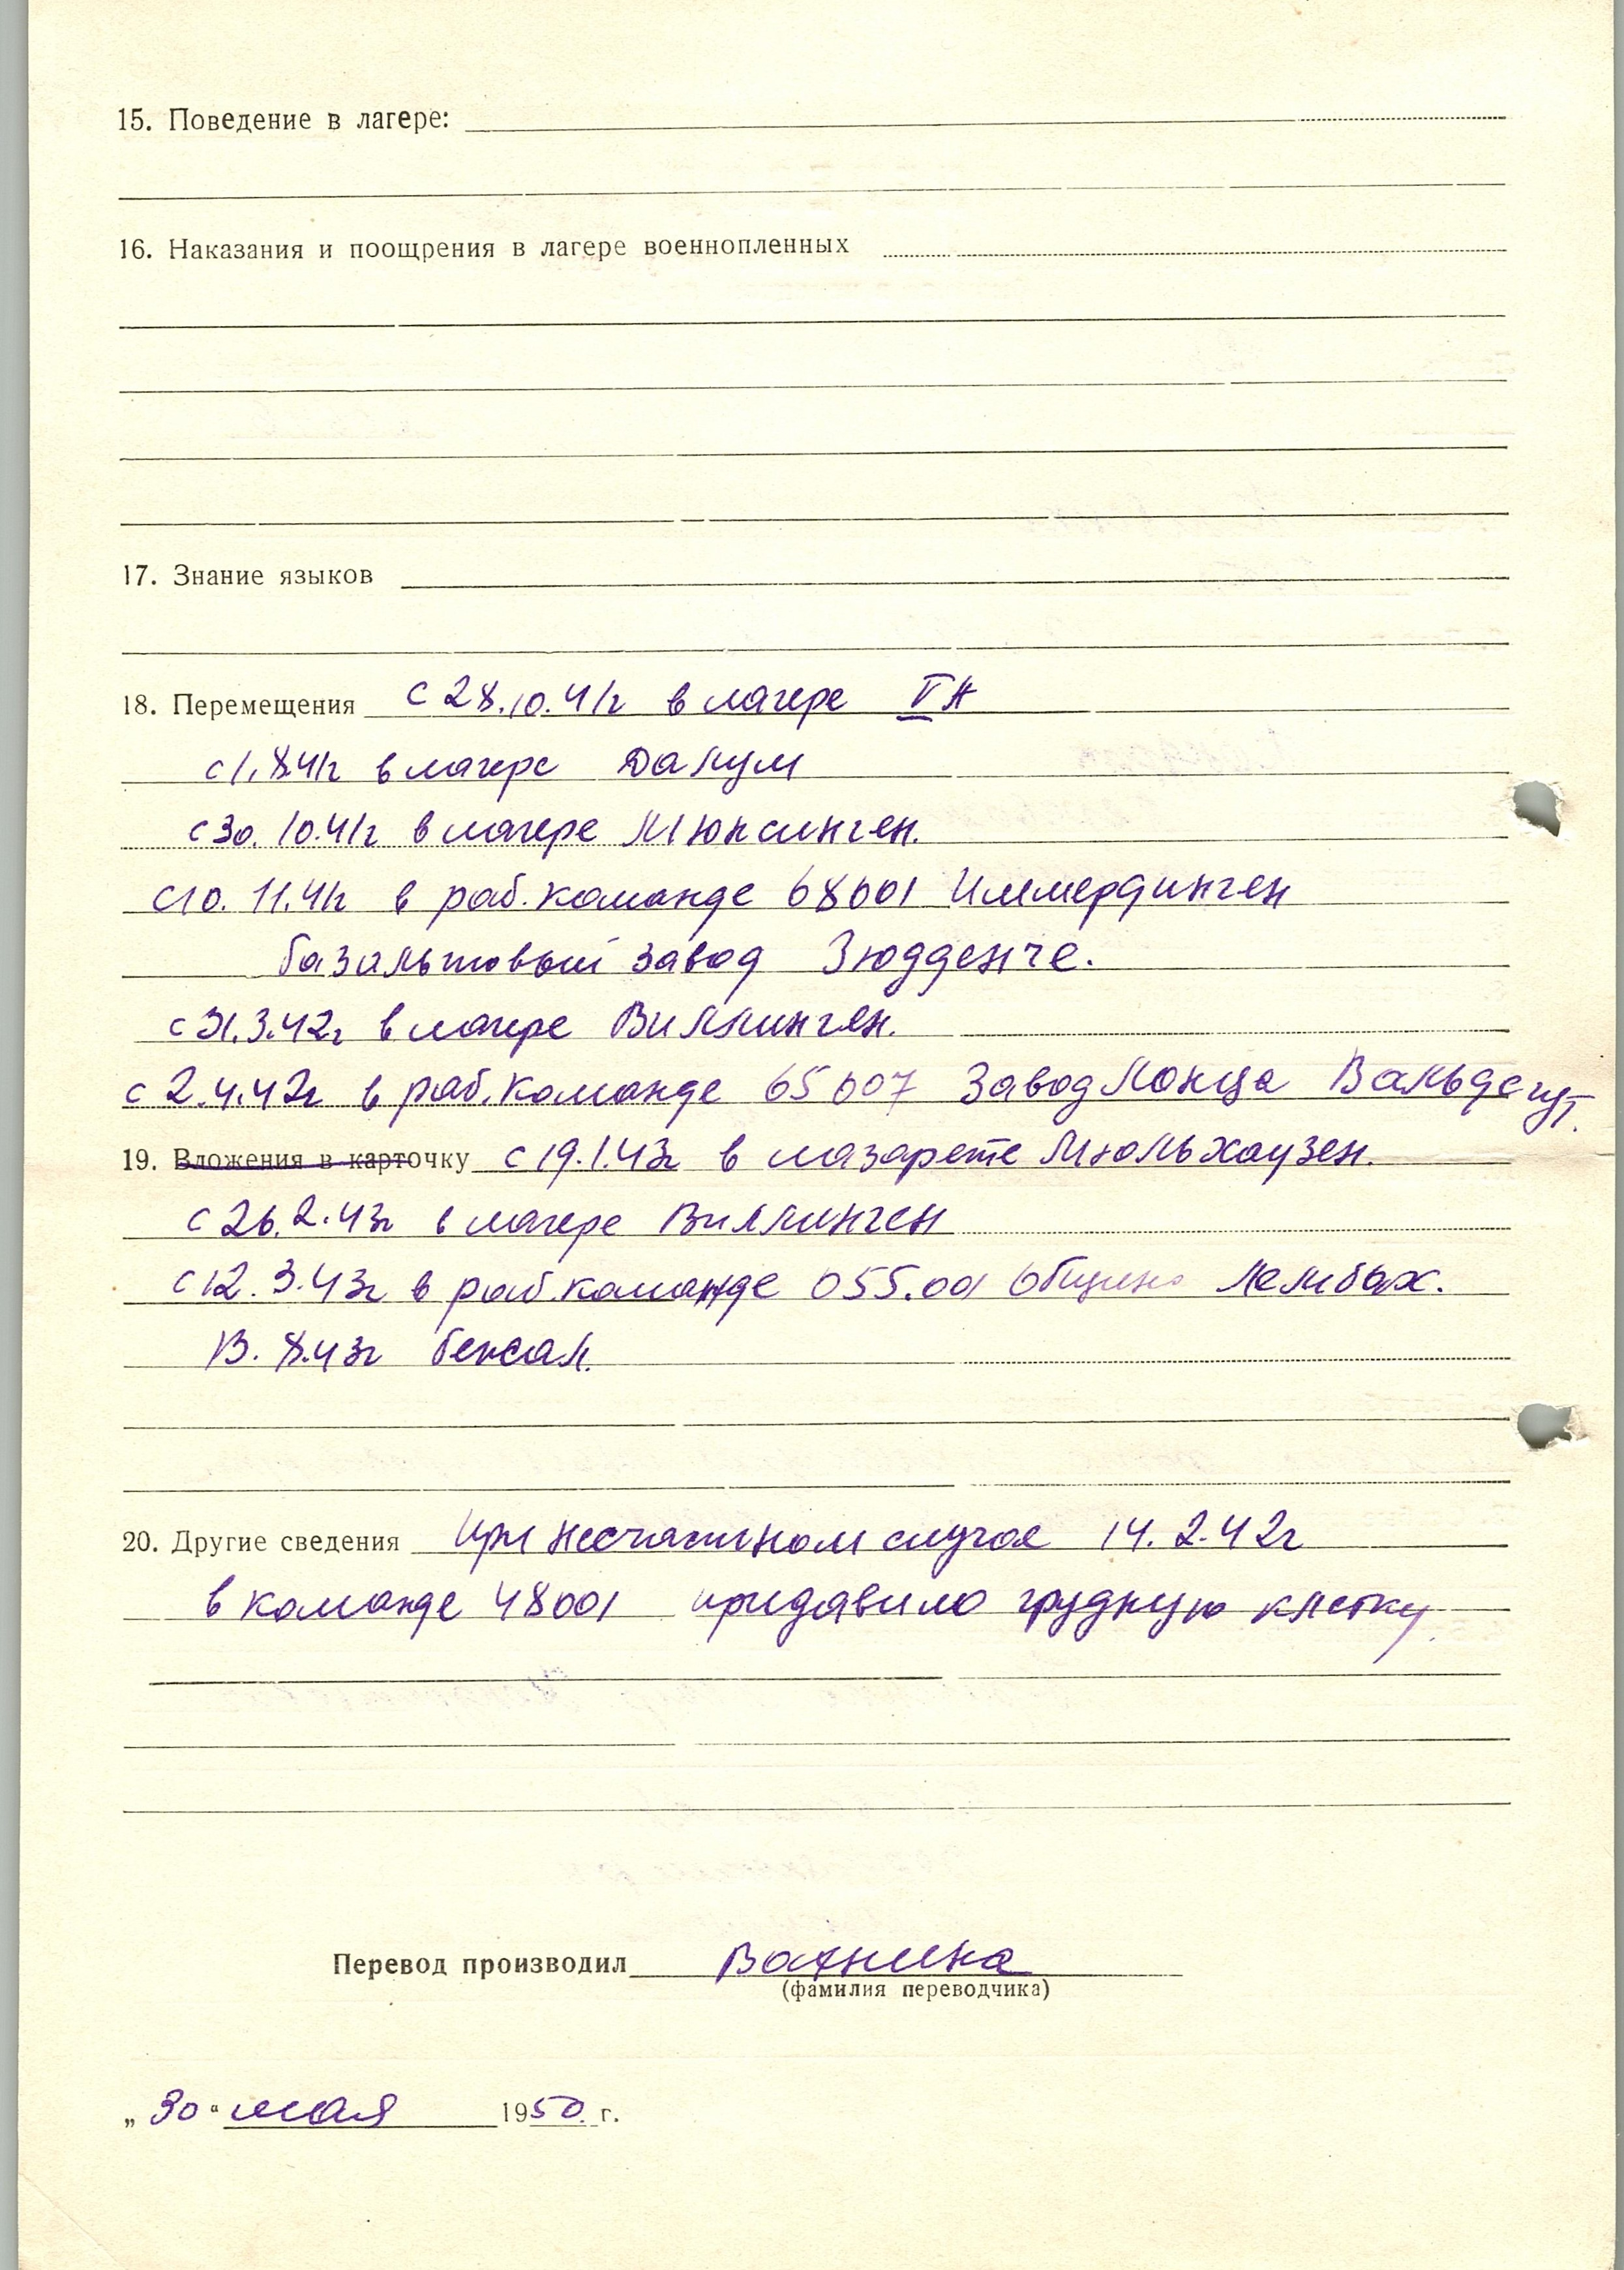 15. Поведение в лагере:
16. Наказания и поощрения в лагере военнопленных
17. Знание языков
18. Перемещения с 28.10.41г в лагере VА
с 1.8.41г в лагере Далум
с 30.10.41г в лагере Мюнсинген.
с 10.11.41г в раб. команде 68001 Иммердинген
базальтовый завод Зюдденче.
с 31.3.42г в лагере Виллинген.
с 2.4.42г в раб. команде 65007 Завод Лонца Вальдсгут.
19. Вложения в карточку с 19.1.43г в лазарете Мюльхаузен.
с 26.2.43г в лагере Виллинген
с 12.3.43г в раб. команде 055.001 Община Лембах.
13.8.43г бежал.
20. Другие сведения При несчастном случае 14.2.42г
в команде 48001 придавило грудную клетку.
Перевод производил
(фамилия переводчика)
„30“ мая 1950 г.